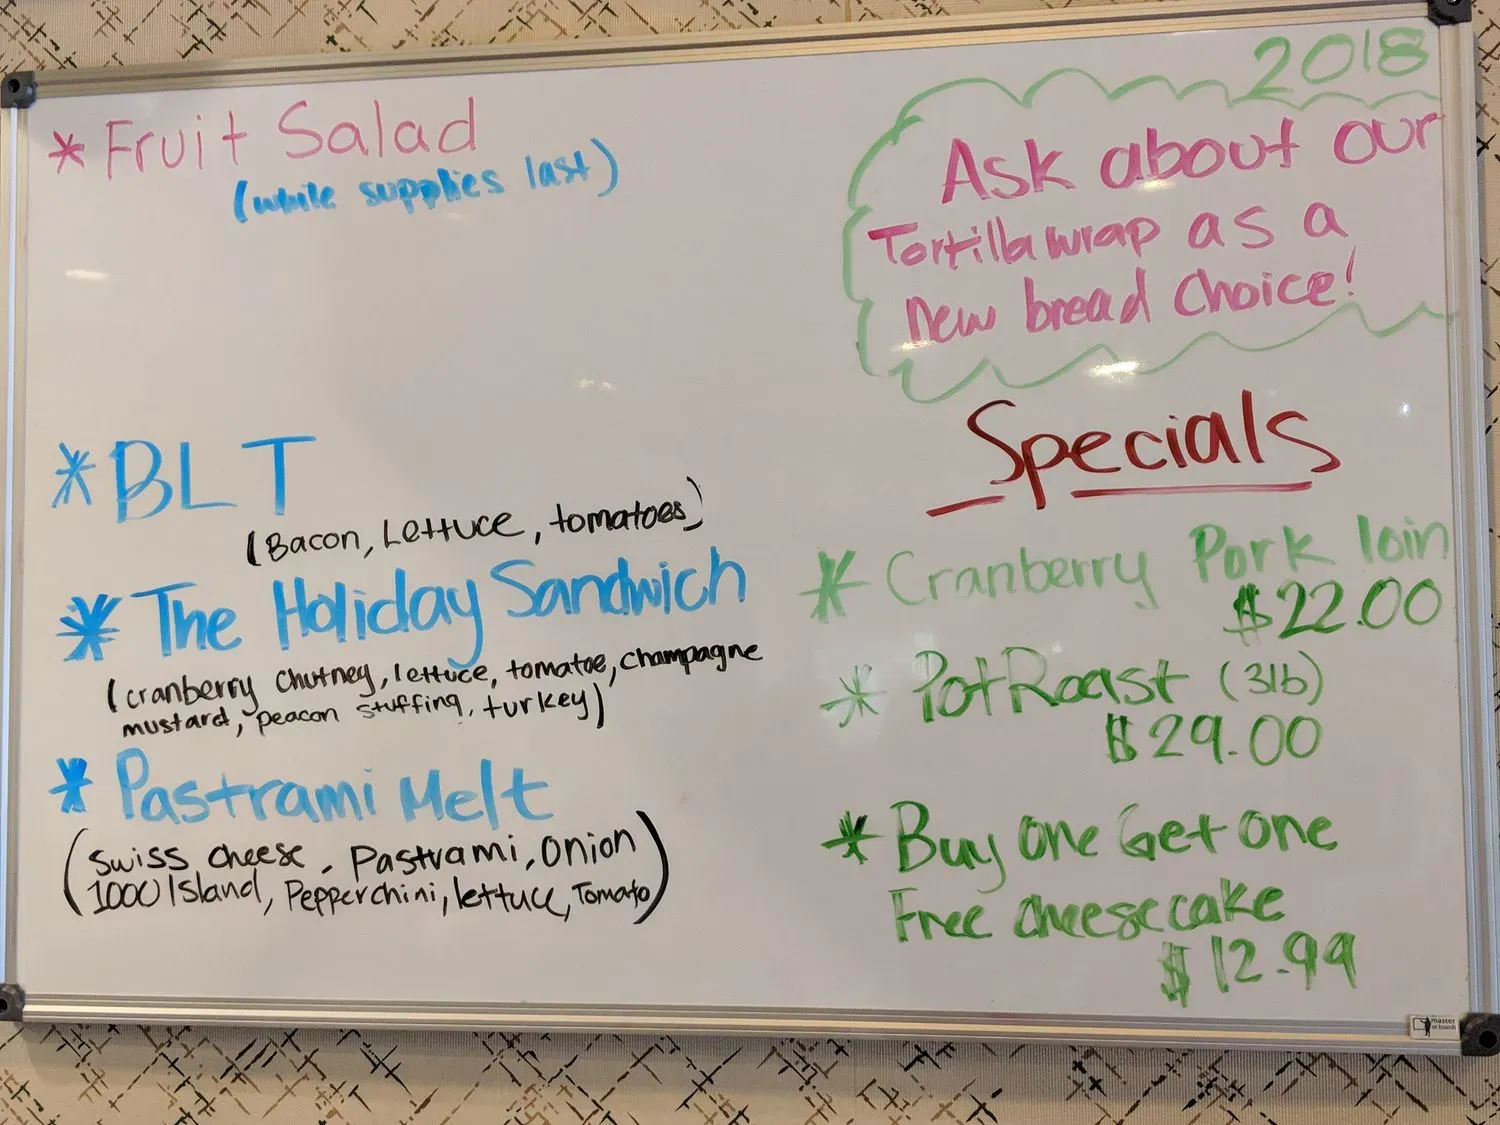 * Fruit Salad
(while supplies last)
* BLT
(Bacon, Lettuce, tomatoes)
* The Holiday Sandwich
(cranberry chutney, lettuce, tomatoe, champagne
mustard, peacan stuffing, turkey)
* Pastrami Melt
(swiss cheese, Pastrami, onion
1000 Island, Pepperchini, lettuce, Tomato)
2018
Ask about our
Tortilla wrap as a
new bread choice!
Specials
* Cranberry Pork loin
$22.00
* Pot Roast (3lb)
$29.00
* Buy one Get one
Free cheesecake
$12.99
master
of boards